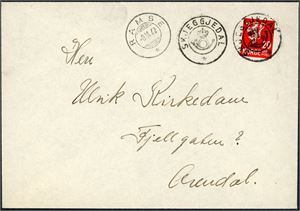 RAMSE
SKJEGGJEDAL
20
NORGE
Herr
Ulrik Kirkedam
Fjellgaten ?
Arendal.